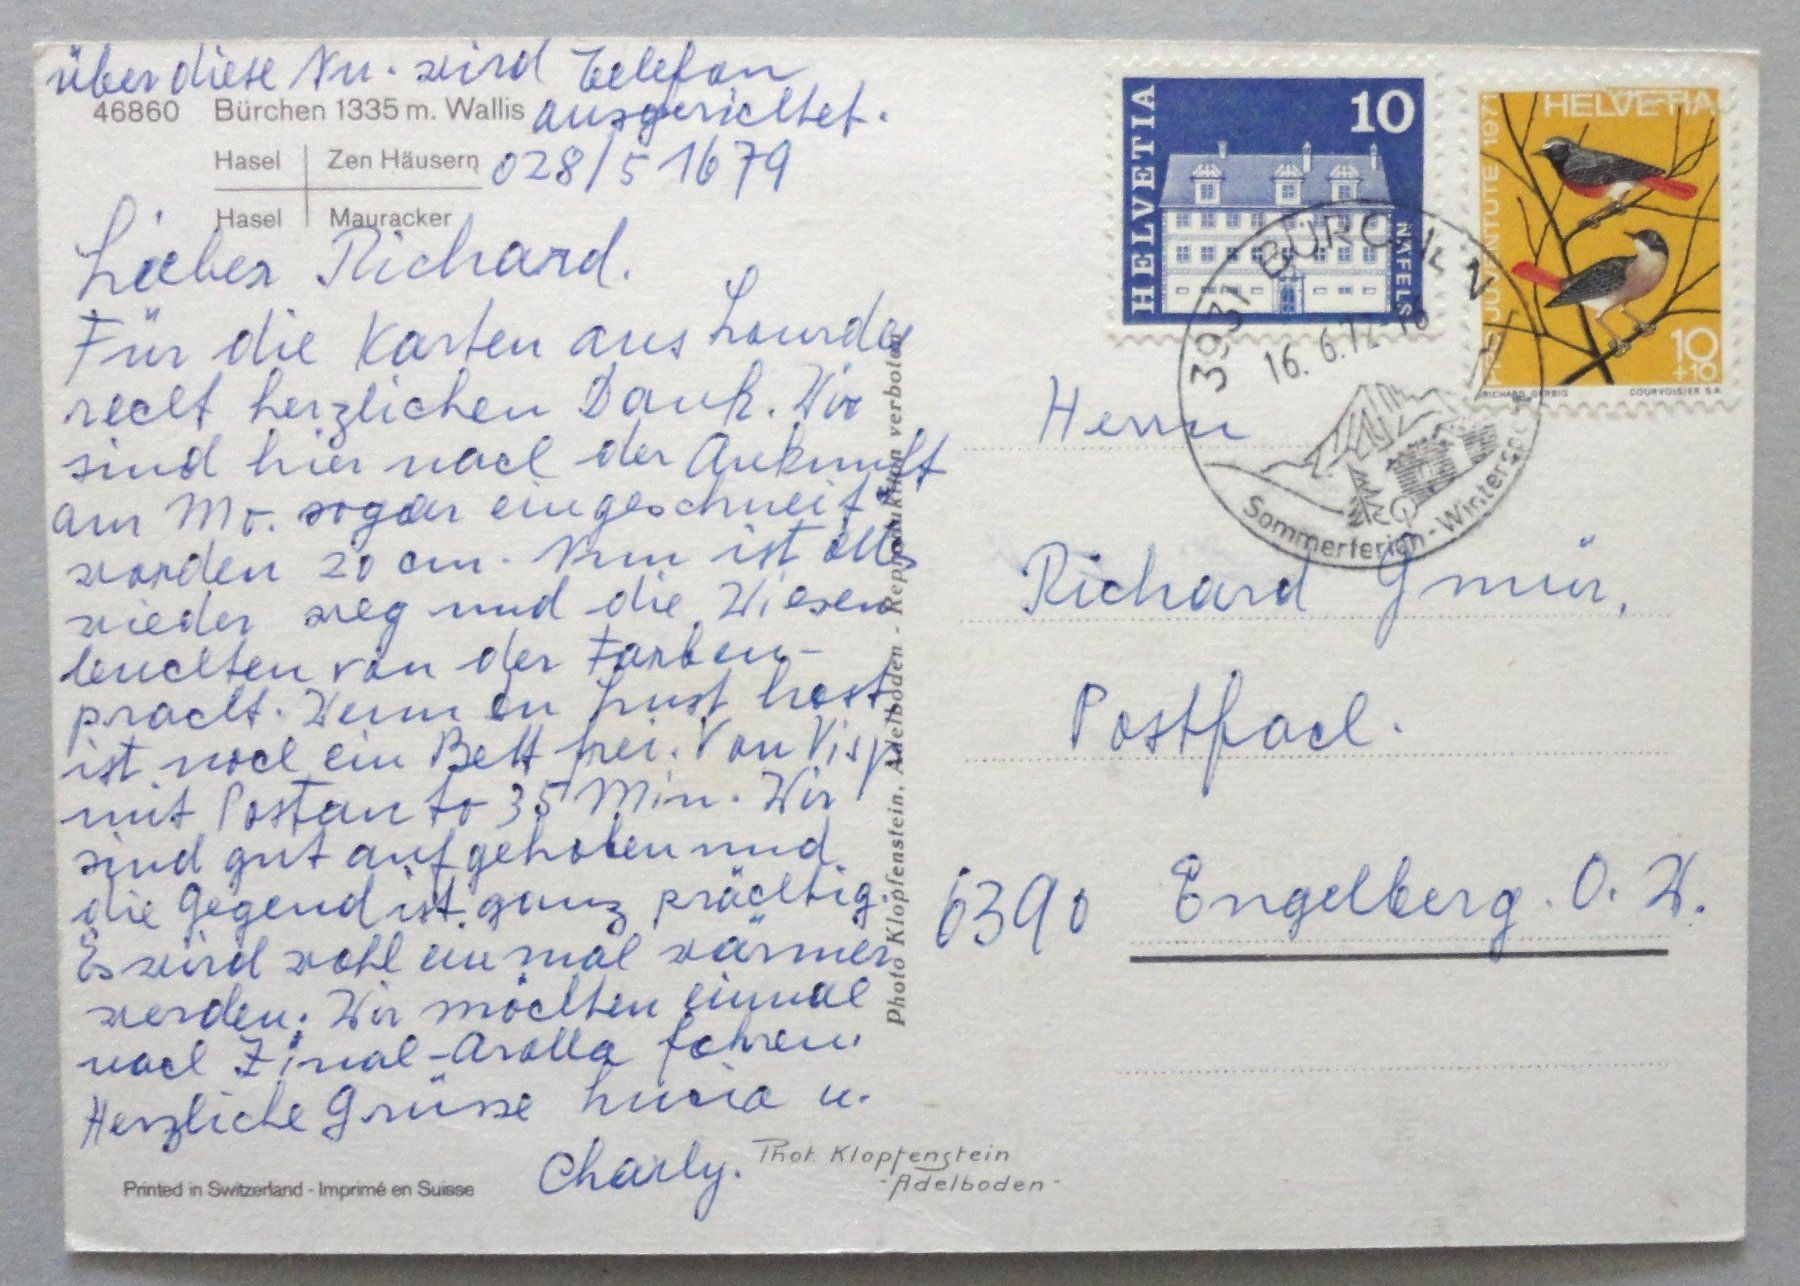 über diese Nu. wird Telefon
ausgerichtet.
46860 Bürchen 1335 m. Wallis
028/5 16 79
Hasel Zen Häusern
Hasel Mauracker
Lieber Richard.
Für die Karten aus Lourdes
recht herzlichen Dank. Wir
sind hier nach der Ankunft
am Mo. sogar eingeschneit
worden 20 cm. Nun ist alls
wieder weg und die Wiesen
leuchten von der Farben-
pracht. Wenn du Lust hast,
ist noch ein Bett frei. Von Visp
mit Postauto 35 Min. Wir
sind gut aufgehoben und
die Gegend ist ganz prächtig.
Es wird wohl einmal wärmer
werden. Wir möchten einmal
nach Zinal-Arolla fahren.
Herzliche Grüsse Lucia u.
Charly.
Printed in Switzerland - Imprimé en Suisse
Phot. Klopfenstein
-Adelboden-
Photo Klopfenstein, Adelboden - Reproduktion verboten
HELVETIA
10
NÄFELS
HELVETIA
PRO JUVENTUTE 1971
10
+10
RICHARD GERBIG COURVOISIER S.A.
3931 BÜRCHEN
16. 6. 72-16
Sommerferien - Wintersp
Herrn
Richard Gmür,
Postfach.
6390 Engelberg. O. W.